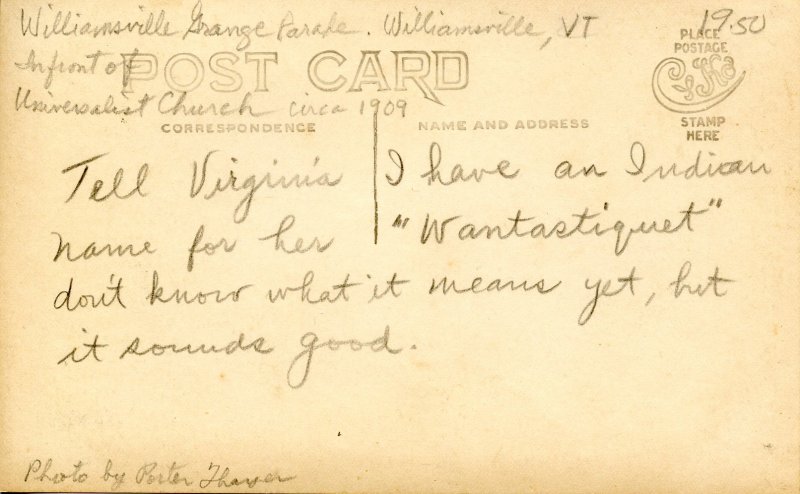 Williamsville Grange Parade. Williamsville, VT
19.50
Infront of
Universalist Church circa 1909
POST CARD
PLACE
POSTAGE
STAMP
HERE
CORRESPONDENCE
NAME AND ADDRESS
Tell Virginia I have an Indian
name for her "Wantastiquet"
don't know what it means yet, but
it sounds good.
Photo by Porter Thayer